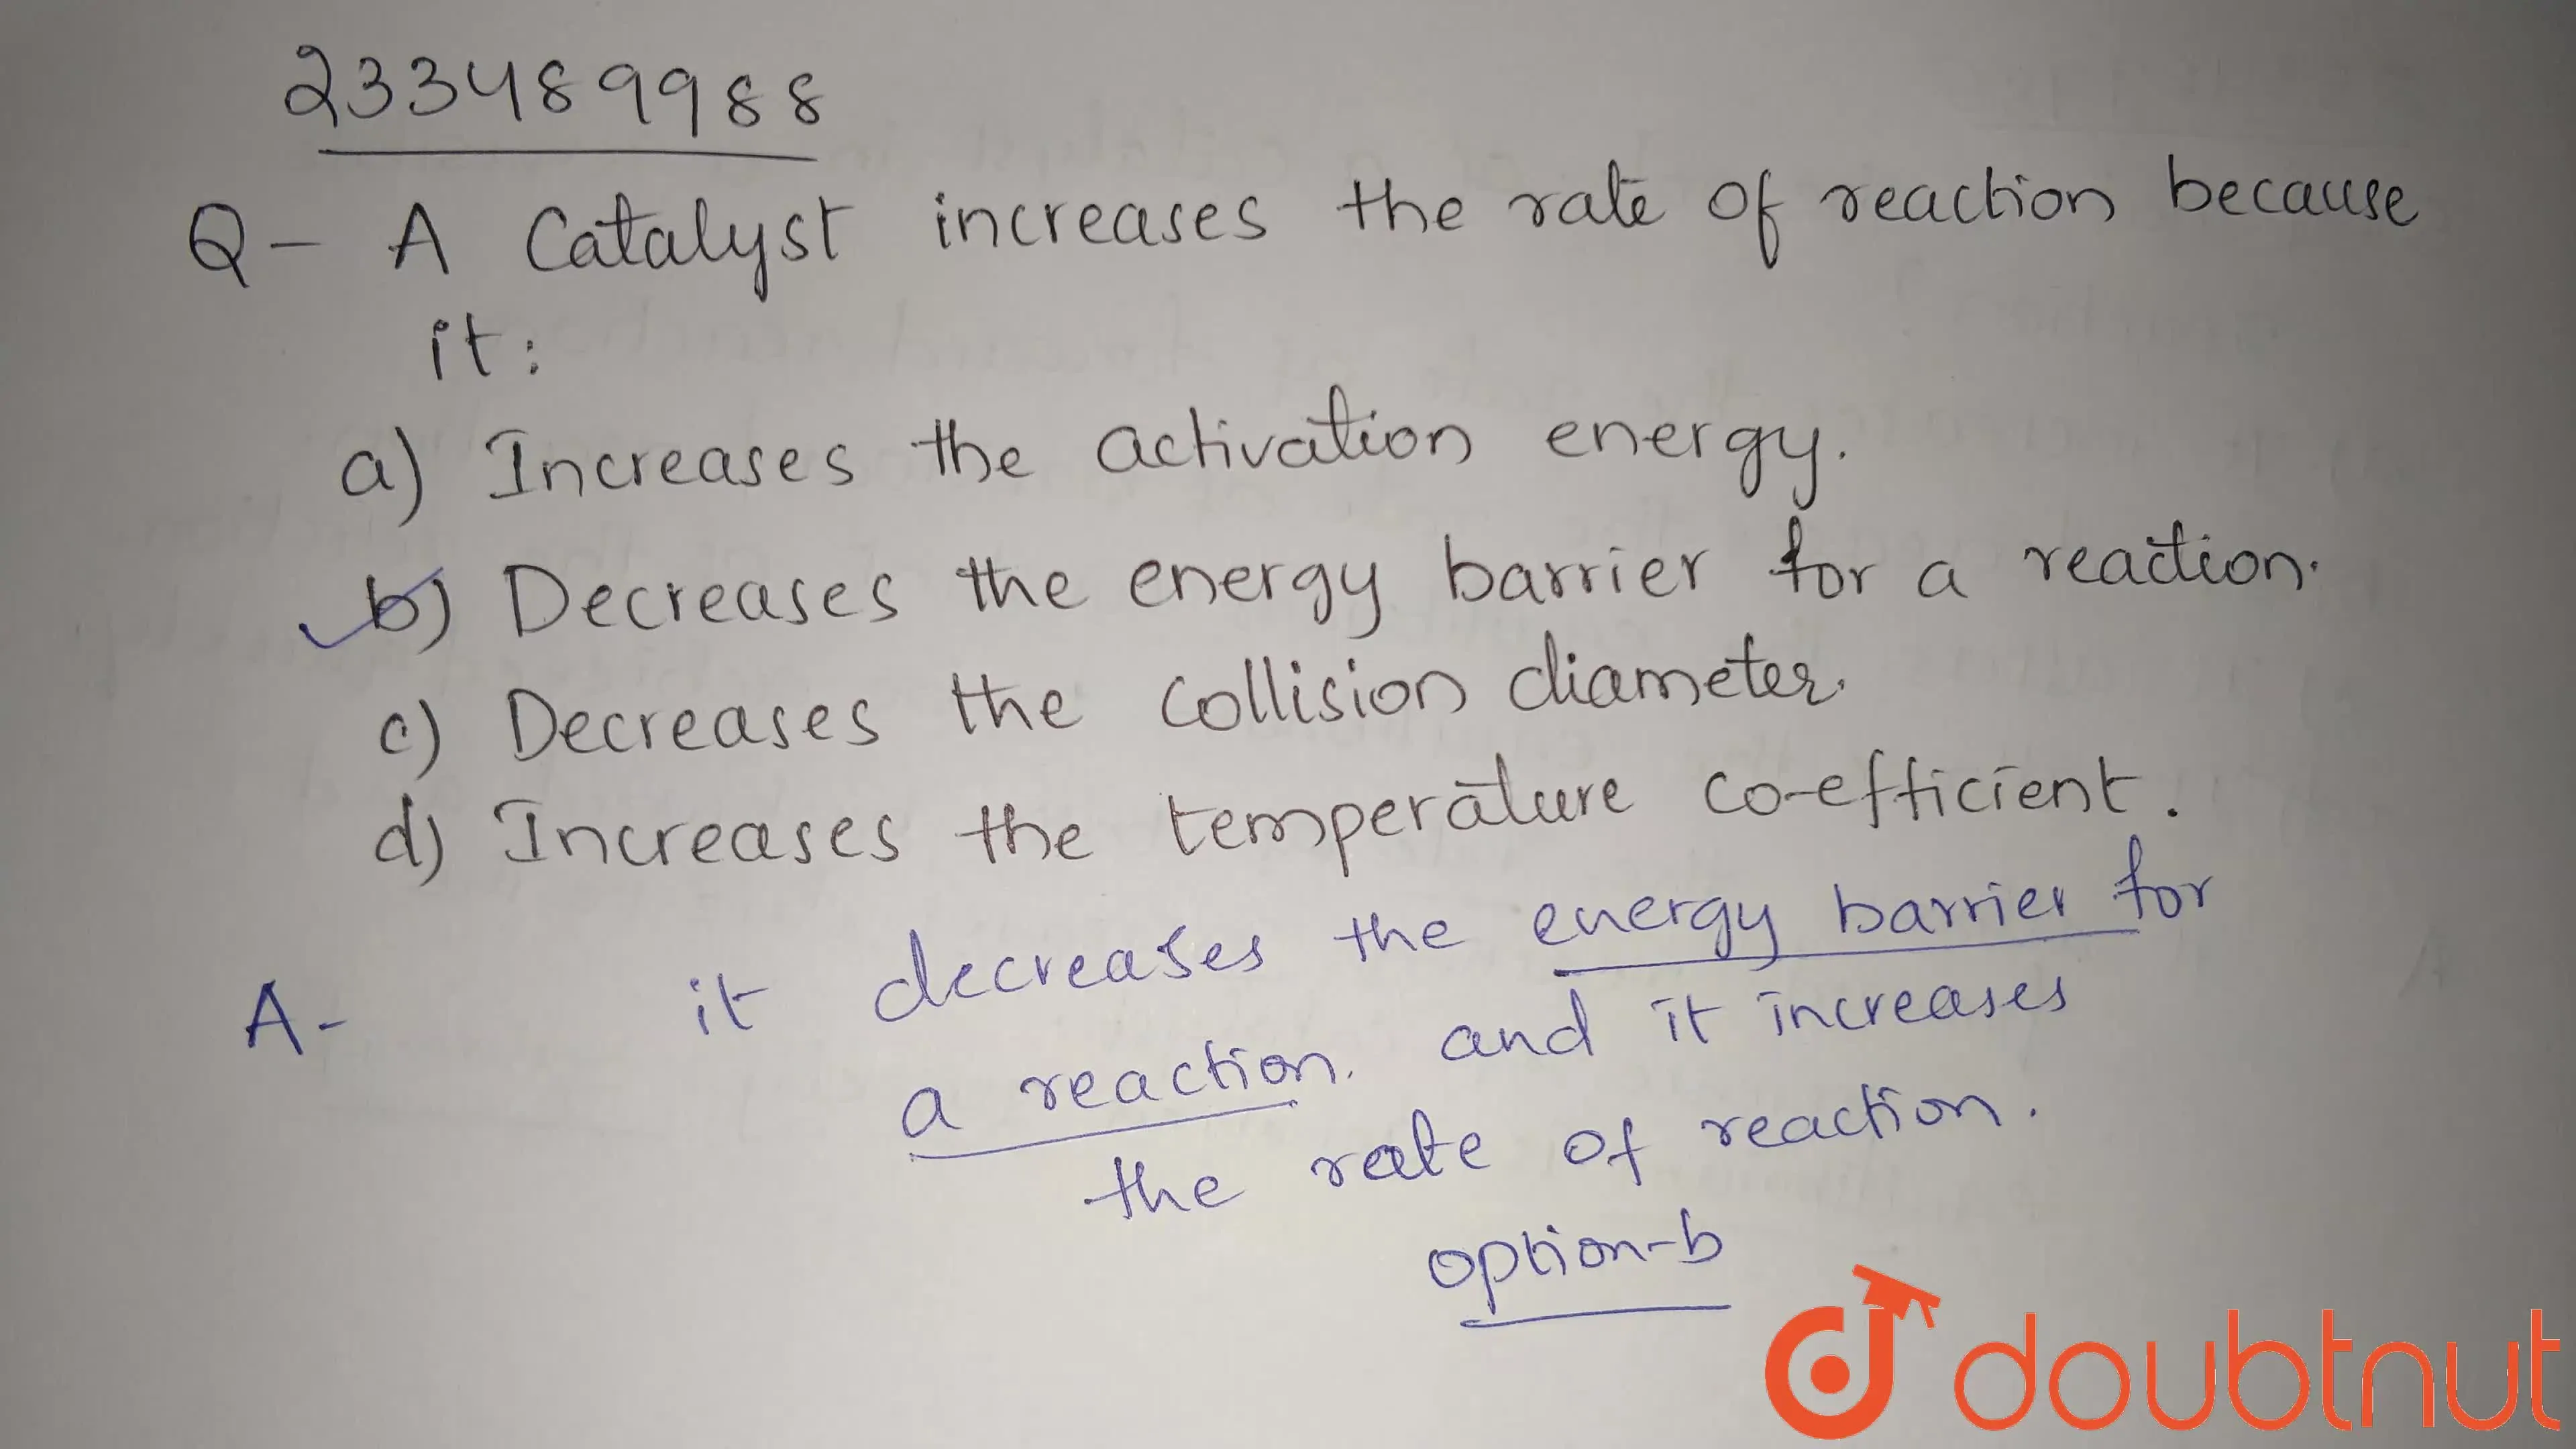 233489988
Q- A Catalyst increases the rate of reaction because
it:
a) Increases the activation energy.
b) Decreases the energy barrier for a reaction.
c) Decreases the collision diameter.
d) Increases the temperature co-efficient.
A- it decreases the energy barrier for
a reaction. and it increases
the rate of reaction.
option-b
doubtnut